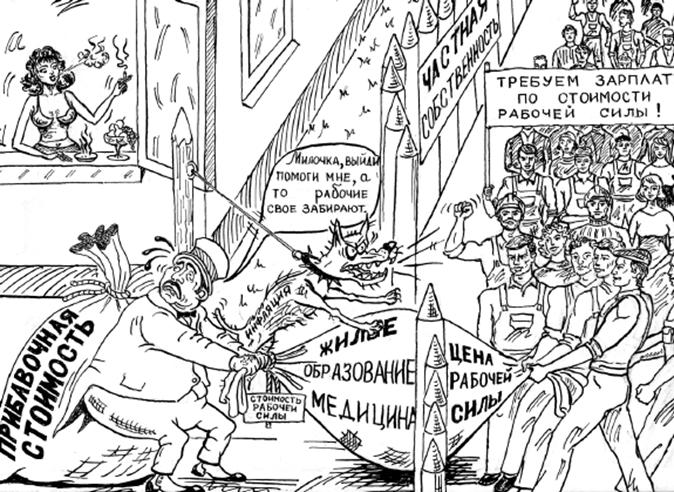 ЧАСТНАЯ
СОБСТВЕННОСТЬ
ТРЕБУЕМ ЗАРПЛАТ
ПО СТОИМОСТИ
РАБОЧЕЙ СИЛЫ !
Милочка, выйди
помоги мне, а
то рабочие
свое забирают.
ИНФЛЯЦИЯ
ПРИБАВОЧНАЯ
СТОИМОСТЬ
СТОИМОСТЬ
РАБОЧЕЙ
СИЛЫ
ЖИЛЬЕ
ОБРАЗОВАНИЕ
МЕДИЦИНА
ЦЕНА
РАБОЧЕЙ
СИЛЫ